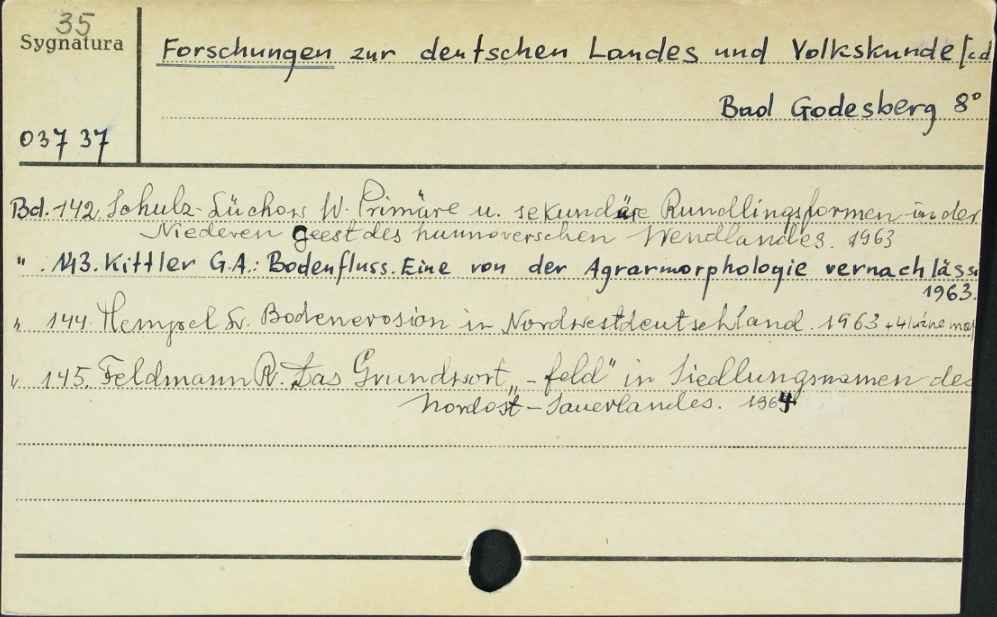 35
Sygnatura
Forschungen zur deutschen Landes und Volkskunde [cd
Bad Godesberg 8°
037 37
Bd. 142 Schulz-Lüchow W. Primäre u. sekundäre Rundlingsformen in der
Niederen Geest des hannoverschen Wendlandes. 1963
" . 143. Kittler G.A.: Bodenfluss. Eine von der Agrarmorphologie vernachläss
1963.
" 144. Hempel L. Bodenerosion in Nordwestdeutschland. 1963 + 4 luźne map
" 145. Feldmann R. Das Grundwort „-feld" in Siedlungsnamen des
Nordost-Sauerlandes. 1964